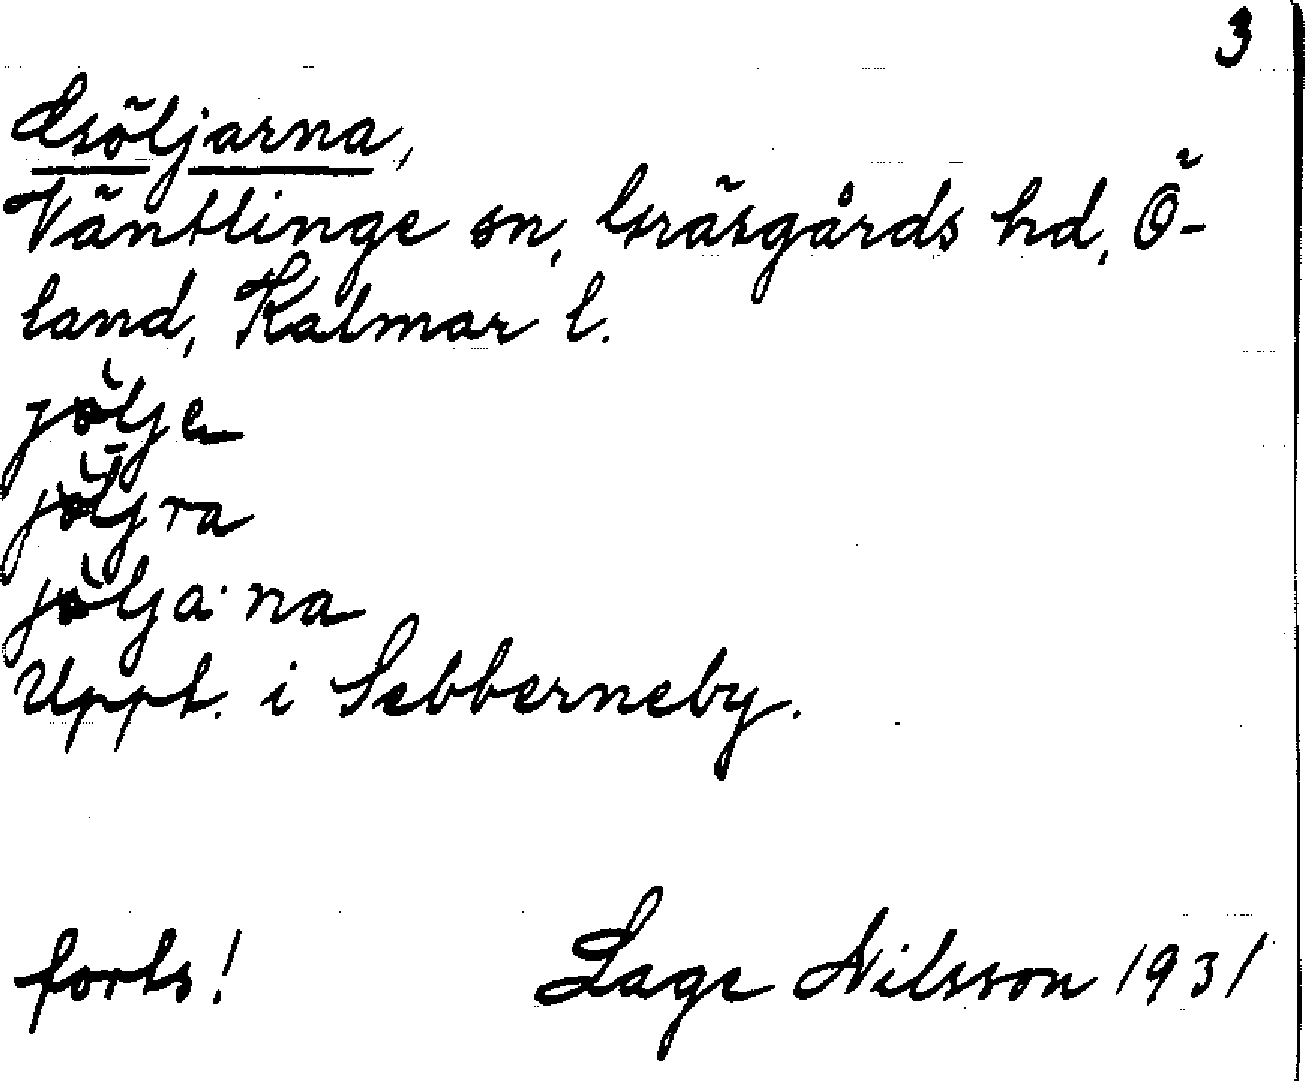 3
Gsöljarna,
Ventlinge sn, Gräsgårds hd, Ö-
land, Kalmar l.
jöljer
jöljra
jölja·na
Uppt. i Sebberneby.
forts! Lage Nilsson 1931